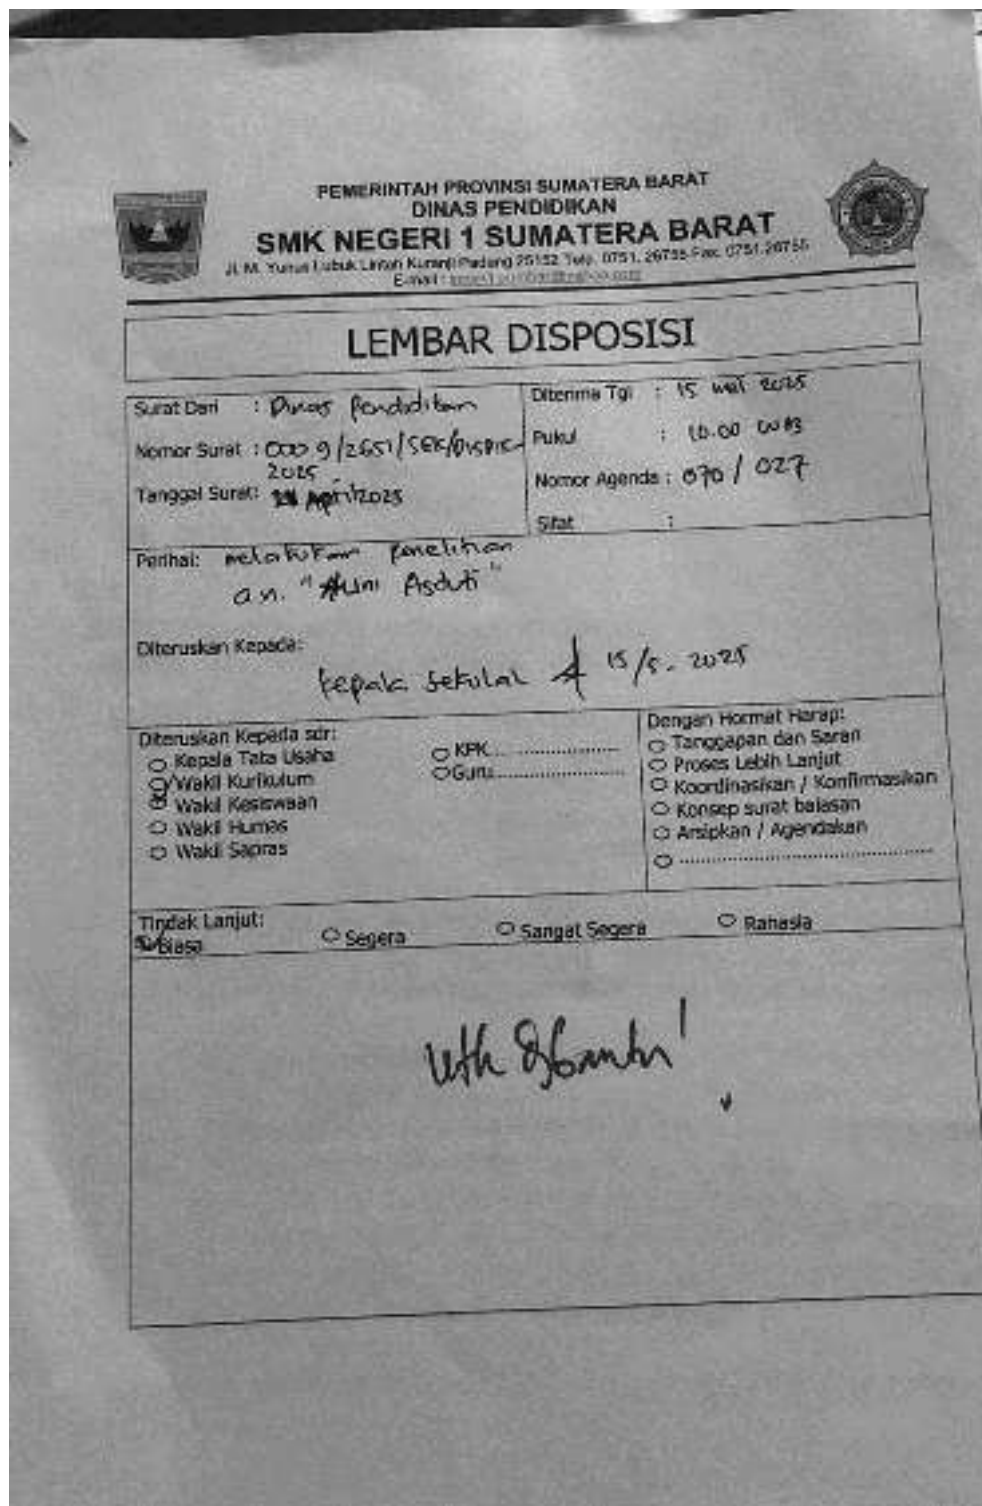 PEMERINTAH PROVINSI SUMATERA BARAT
DINAS PENDIDIKAN
SMK NEGERI 1 SUMATERA BARAT
Jl. M. Yunus Lubuk Lintah Kuranji Padang 25152 Telp. 0751. 26755 Fax. 0751.26755
E-mail :
LEMBAR DISPOSISI
Surat Dari : Dinas Pendidikan
Nomor Surat : 000 9/2651/SEK/DISDIK-
2025
Tanggal Surat: April 2025
Diterima Tgl : 15 Mei 2025
Pukul : 10.00 WIB
Nomor Agenda : 070 / 027
Sifat :
Perihal: melakukan penelitian
an. " Asduti"
Diteruskan Kepada:
kepala sekolah 15/5-2025
Diteruskan Kepada sdr:
Kepala Tata Usaha
Wakil Kurikulum
Wakil Kesiswaan
Wakil Humas
Wakil Sapras
KPK.....................
Guru.....................
Dengan Hormat Harap:
Tanggapan dan Saran
Proses Lebih Lanjut
Koordinasikan / Konfirmasikan
Konsep surat balasan
Arsipkan / Agendakan
..........................................
Tindak Lanjut:
Biasa Segera Sangat Segera Rahasia
Utk dibantu!